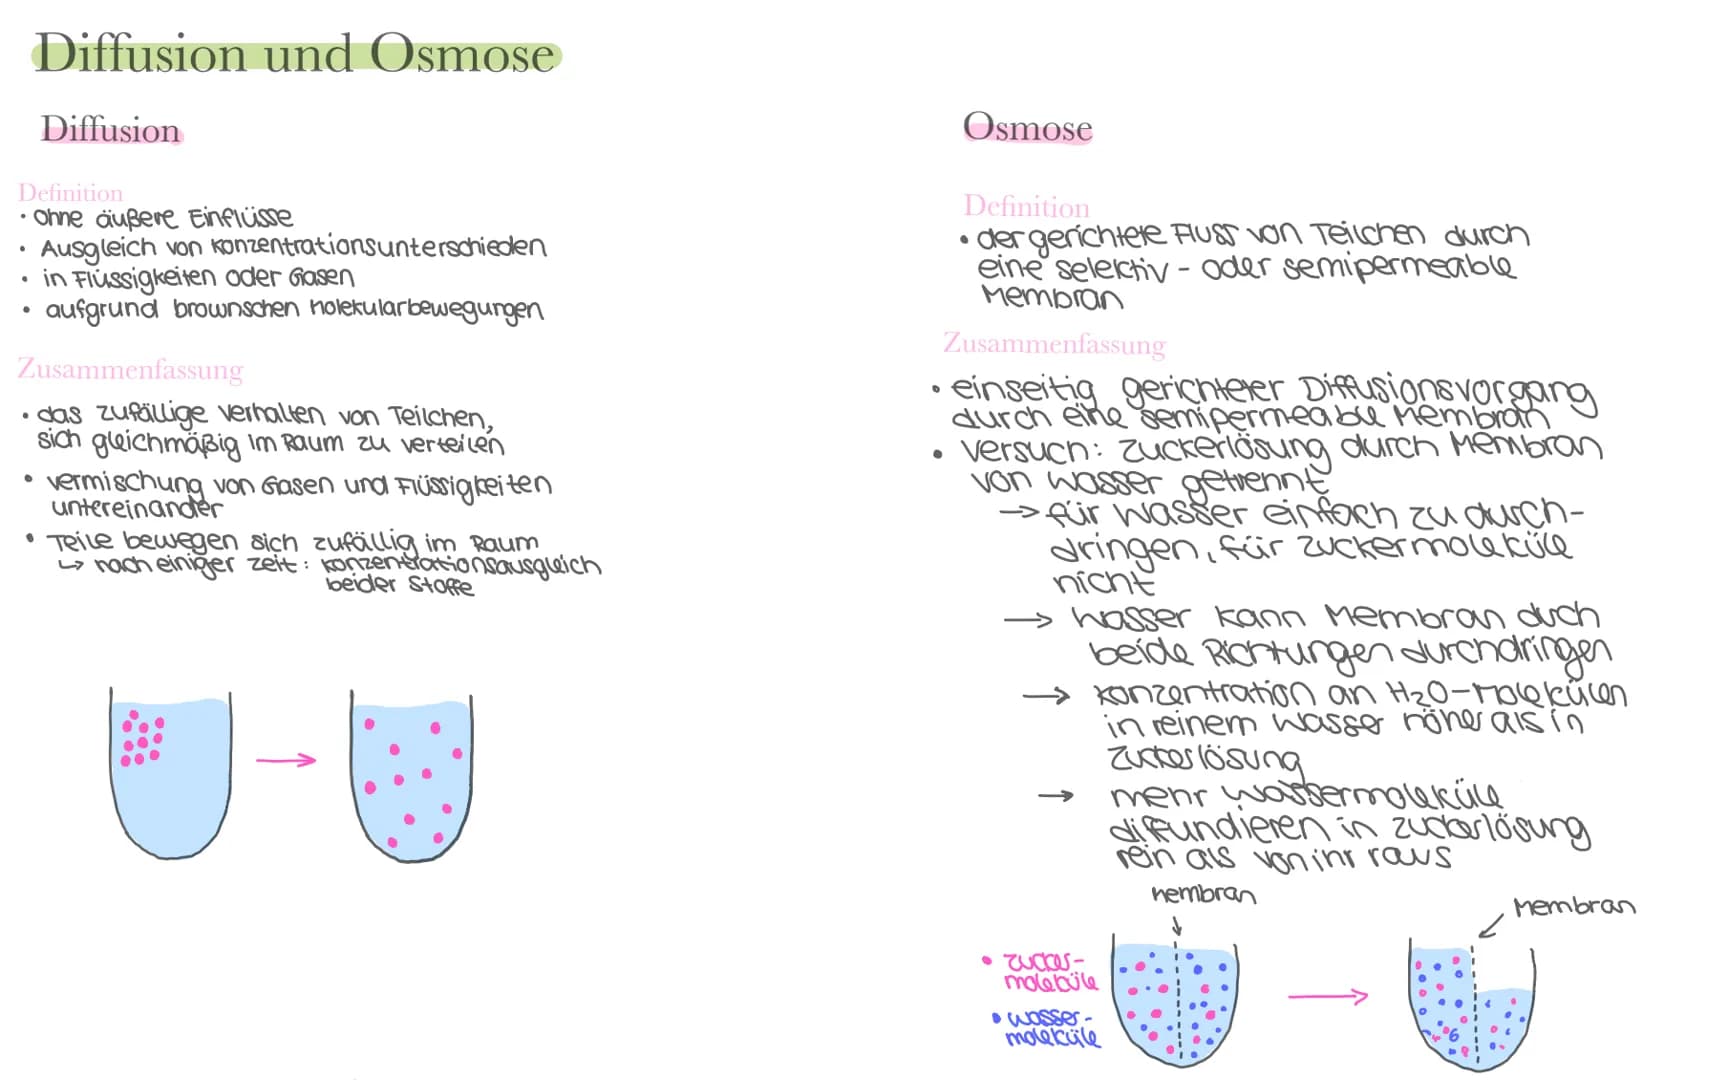 Diffusion und Osmose
Diffusion
Definition
• ohne äußere Einflüsse
• Ausgleich von Konzentrationsunterschieden
• in Flüssigkeiten oder Gasen
• aufgrund brownschen Molekularbewegungen
Zusammenfassung
• das zufällige Verhalten von Teilchen,
sich gleichmäßig im Raum zu verteilen
• Vermischung von Gasen und Flüssigkeiten
untereinander
• Teile bewegen sich zufällig im Raum
↳ nach einiger Zeit: Konzentrationsausgleich
beider Stoffe
Osmose
Definition
• der gerichtete Fluss von Teilchen durch
eine selektiv- oder semipermeable
Membran
Zusammenfassung
• einseitig gerichteter Diffusionsvorgang
durch eine semipermeable Membran
• Versuch: Zuckerlösung durch Membran
von Wasser getrennt
→ für Wasser einfach zu durch-
dringen, für Zuckermoleküle
nicht
→ Wasser kann Membran duch
beide Richtungen durchdringen
→ Konzentration an H₂O-Molekülen
in reinem Wasser höher als in
Zuckerlösung
→ mehr Wassermoleküle
diffundieren in Zuckerlösung
rein als von ihr raus
Membran
Membran
• Zucker-
moleküle
• Wasser-
moleküle